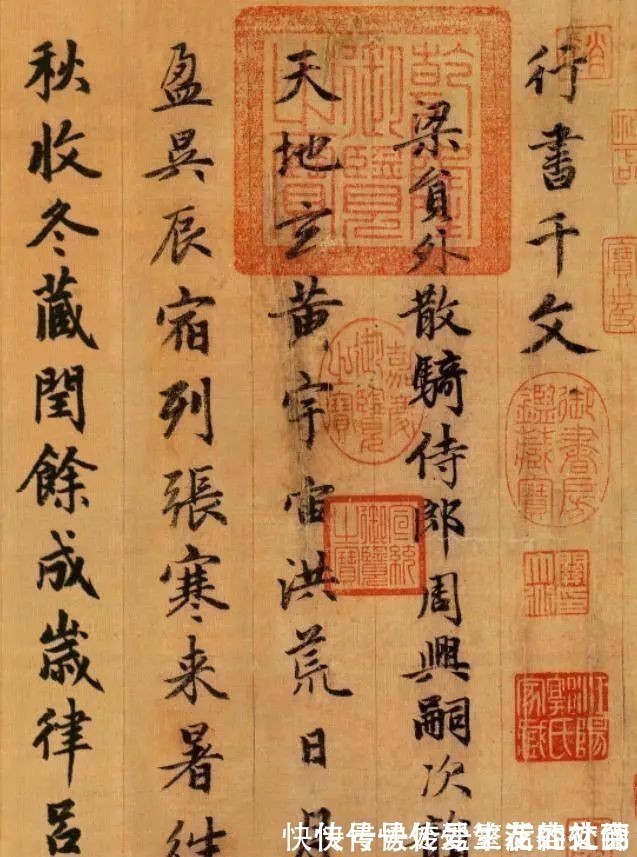 行書千文
梁員外散騎侍郎周興嗣次
天地玄黄宇宙洪荒日月
盈昃辰宿列張寒来暑往
秋收冬藏閏餘成歲律呂
乾隆御覽之寶
嘉慶御覽之寶
宣統御覽之寶
御書房鑑藏寶